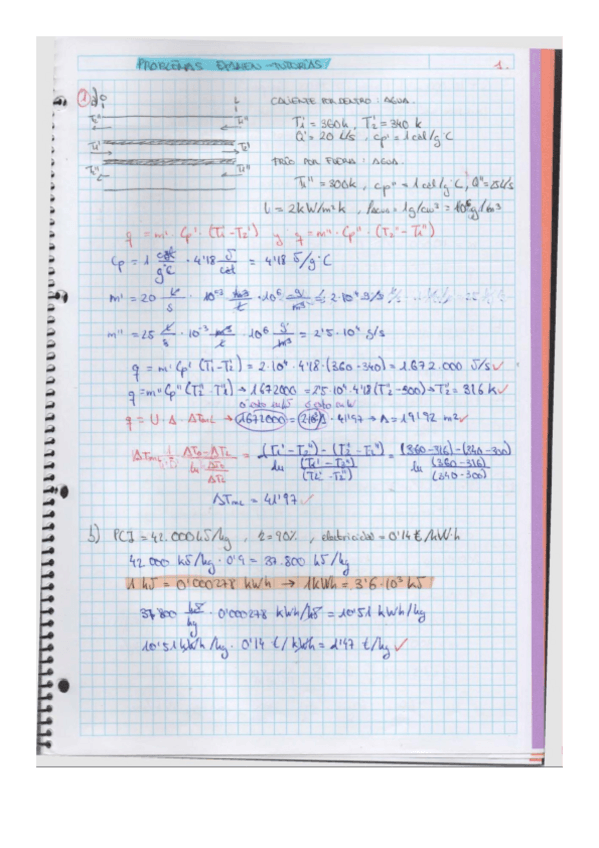 PROBLEMAS EXAMEN - TUTORÍAS 1.
① a) 0 L CALIENTE POR DENTRO: AGUA.
T2'' T1'' T1' = 360 k, T2' = 340 k
T1' T2' Q' = 20 L/s, cp' = 1 cal/g°C
T2'' T1'' FRÍO POR FUERA: AGUA.
T1'' = 300k, cp'' = 1 cal/g°C, Q'' = 25 L/s
U = 2kW/m²k, ρagua = 1g/cm³ = 10⁶ g/m³
q = m' · Cp' · (T1' - T2') y q = m'' · Cp'' · (T2'' - T1'')
Cp = 1 cal/g°C · 4'18 J/cal = 4'18 J/g°C
m' = 20 L/s · 10⁻³ m³/L · 10⁶ g/m³ = 2·10⁴ g/s
m'' = 25 L/s · 10⁻³ m³/L · 10⁶ g/m³ = 2'5·10⁴ g/s
q = m' Cp' (T1' - T2') = 2·10⁴ · 4'18 · (360 - 340) = 1.672.000 J/s ✓
q = m'' Cp'' (T2'' - T1'') → 1672000 = 2'5·10⁴ · 4'18 (T2'' - 300) → T2'' = 316 k ✓
q = U · A · ΔTmL → 1672000 = 2·10³ A · 41'97 → A = 19'92 m² ✓
ΔTmL = (ΔT0 - ΔTL) / ln (ΔT0/ΔTL) = ((T1' - T2'') - (T2' - T1'')) / ln ((T1' - T2'')/(T2' - T1'')) = ((360 - 316) - (340 - 300)) / ln ((360 - 316)/(340 - 300))
ΔTmL = 41'97 ✓
b) PCI = 42.000 kJ/kg, η = 90%, electricidad = 0'14 €/kW·h
42.000 kJ/kg · 0'9 = 37.800 kJ/kg
1 kJ = 0'000278 kWh → 1 kWh = 3'6·10³ kJ
37.800 kJ/kg · 0'000278 kWh/kJ = 10'51 kWh/kg
10'51 kWh/kg · 0'14 €/kWh = 1'47 €/kg ✓